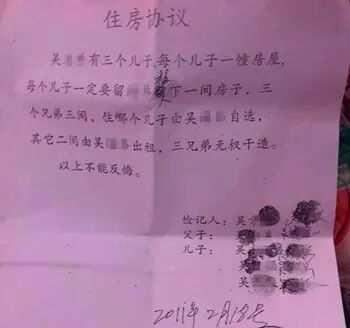 住房协议
吴有三个儿子,每个儿子一幢房屋,
每个儿子一定要留下一间房子,三
个兄弟三间,住哪个儿子由吴自选,
其它二间由吴出租,三兄弟无权干造。
以上不能反悔。
检记人:吴
父子:吴
儿子:吴
吴
吴
2011年2月18号